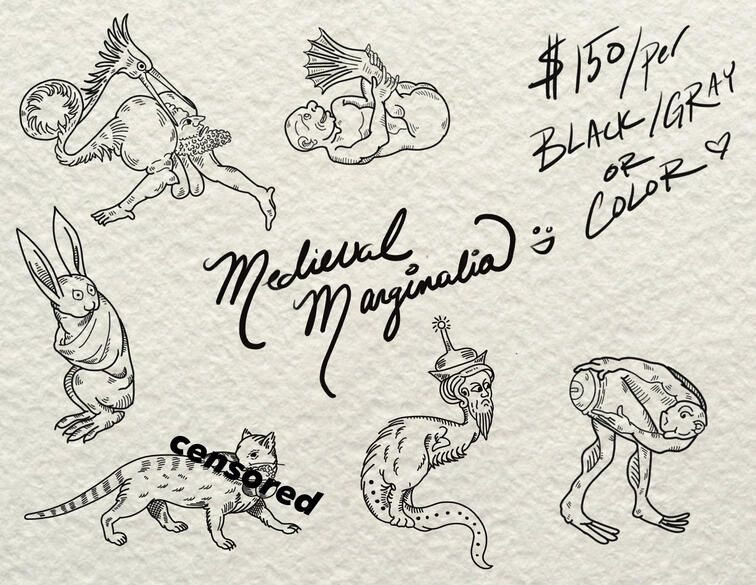 $150/per
BLACK/GRAY
OR
COLOR ♡
Medieval
Marginalia
censored